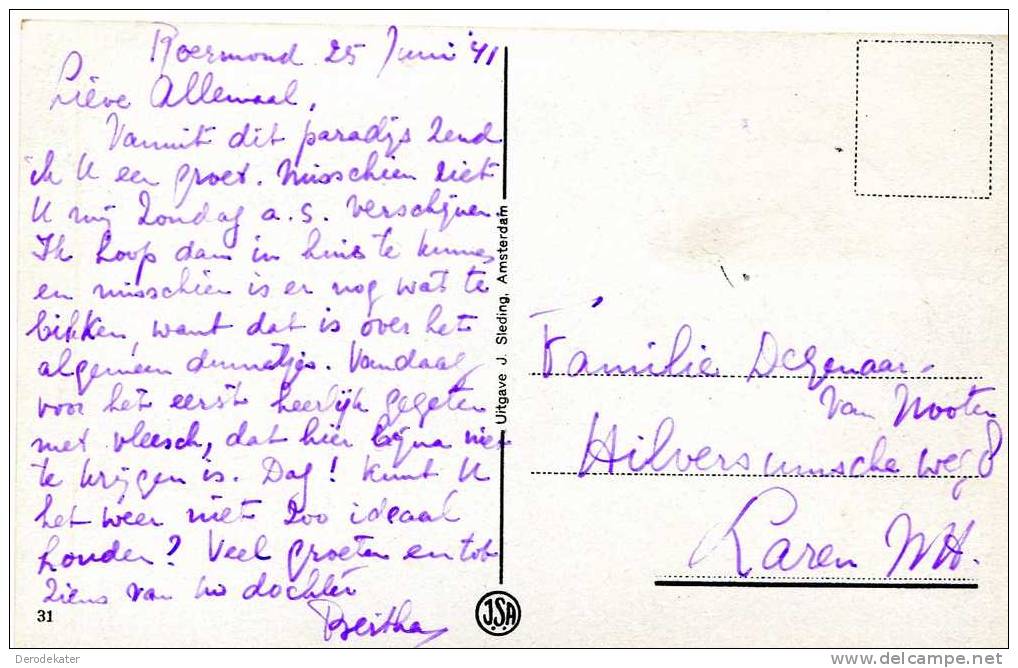 Roermond 25 Juni '41
Lieve Allemaal,
Vanuit dit paradijs zend
ik U een groet. Misschien ziet
U mij Zondag a.s. verschijnen.
Ik hoop dan in huis te kunnen
en misschien is er nog wat te
bikken, want dat is over het
algemeen dunnetjes. Vandaag
voor het eerst heerlijk gegeten
met vleesch, dat hier bijna niet
te krijgen is. Dag! Kunt U
het weer niet zoo ideaal
houden? Veel groeten en tot
ziens van uw dochter
Bertha
31
Uitgave J. Sleding, Amsterdam
JSA
Familie Degenaar-
van Nooten
Hilversumsche weg 8
Laren N.H.
Derodekater
www.delcampe.net